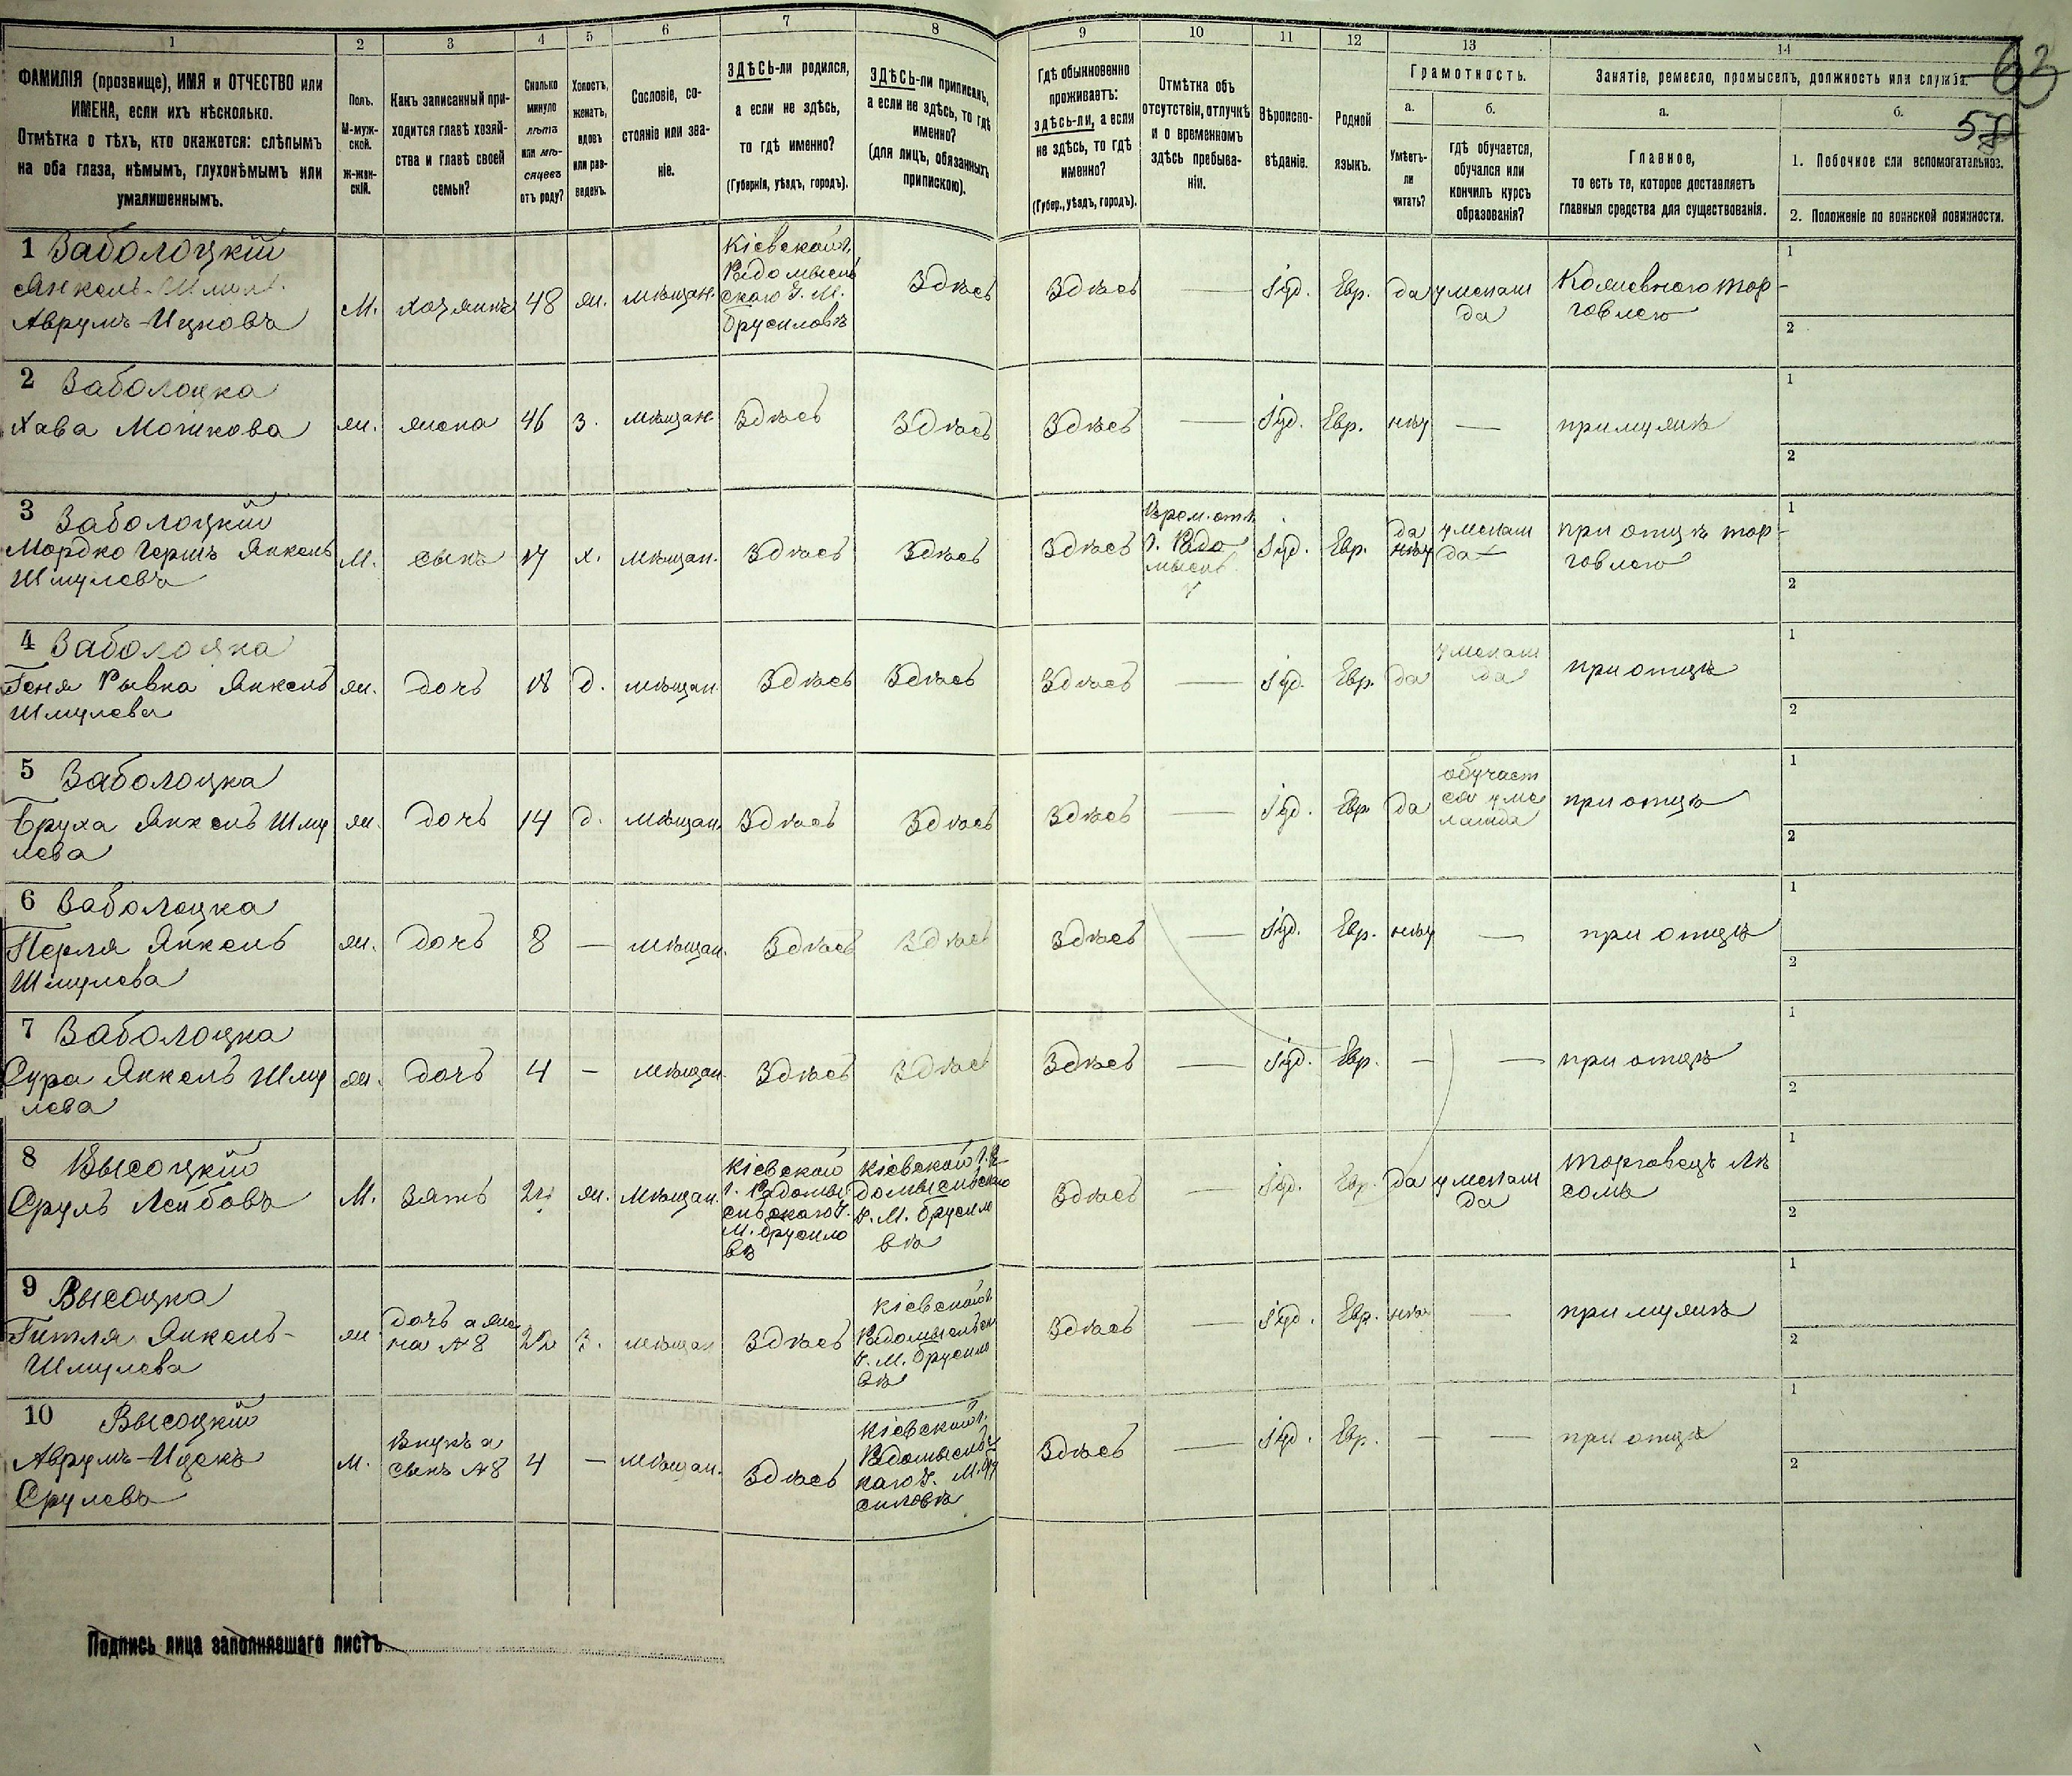 1 2 3 4 5 6 7 8 9 10 11 12 13 14
63
57
ФАМИЛІЯ (прозвище), ИМЯ и ОТЧЕСТВО или
ИМЕНА, если ихъ нѣсколько.
Отмѣтка о тѣхъ, кто окажется: слѣпымъ
на оба глаза, нѣмымъ, глухонѣмымъ или
умалишеннымъ.
Полъ.
М-муж-
ской.
Ж-жен-
скій.
Какъ записанный при-
ходится главѣ хозяй-
ства и главѣ своей
семьи?
Сколько
минуло
лѣтъ
или мѣ-
сяцевъ
отъ роду?
Холостъ,
женатъ,
вдовъ
или раз-
веденъ.
Сословіе, со-
стояніе или зва-
ніе.
ЗДѢСЬ-ли родился,
а если не здѣсь,
то гдѣ именно?
(Губернія, уѣздъ, городъ).
ЗДѢСЬ-ли приписанъ,
а если не здѣсь, то гдѣ
именно?
(для лицъ, обязанныхъ
припискою).
Гдѣ обыкновенно
проживаетъ:
здѣсь-ли, а если
не здѣсь, то гдѣ
именно?
(Губер., уѣздъ, городъ).
Отмѣтка объ
отсутствіи, отлучкѣ
и о временномъ
здѣсь пребыва-
ніи.
Вѣроиспо-
вѣданіе.
Родной
языкъ.
Грамотность.
а.
Умѣетъ-
ли
читать?
б.
гдѣ обучается,
обучался или
кончилъ курсъ
образованія?
Занятіе, ремесло, промыселъ, должность или служба.
а.
Главное,
то есть то, которое доставляетъ
главныя средства для существованія.
б.
1. Побочное или вспомогательное.
2. Положеніе по воинской повинности.
1 Заболоцкій
Янкель-Шмул.
Аврумъ-Ицковъ
М.
хозяинъ
48
жн.
мѣщан.
Кіевской г.
Радомысль
скаго У. М.
Брусиловъ
Здѣсь
Здѣсь
—
Іуд.
Евр.
да
у мелам
да
Кожевного тор-
говлею
1
2
2 Заболоцка
Хава Мошкова
жн.
жена
46
з.
мѣщан
Здѣсь
Здѣсь
Здѣсь
—
Іуд.
Евр.
нѣт
—
при мужѣ
1
2
3 Заболоцкій
Мордко Гершъ Янкель
Шмулевъ
М.
сынъ
17
х.
мѣщан.
Здѣсь
Здѣсь
Здѣсь
Врем. отл.
г. Радо
мысль
Іуд.
Евр.
да
нѣт
у мелам
да
при отцѣ тор-
говлею
1
2
4 Заболоцка
Геня Рывка Янкель
Шмулева
жн.
дочь
18
д.
мѣщан.
Здѣсь
Здѣсь
Здѣсь
—
Іуд.
Евр.
да
у мелам
да
при отцѣ
1
2
5 Заболоцка
Бруха Янкель Шму
лева
жн.
дочь
14
д.
мѣщан.
Здѣсь
Здѣсь
Здѣсь
—
Іуд.
Евр
да
обучает
ся у ме
ламда
при отцѣ
1
2
6 Заболоцка
Перля Янкель
Шмулева
жн.
дочь
8
—
мѣщан.
Здѣсь
Здѣсь
Здѣсь
—
Іуд.
Евр.
нѣт
—
при отцѣ
1
2
7 Заболоцка
Сура Янкель Шму
лева
жн.
дочь
4
—
мѣщан.
Здѣсь
Здѣсь
Здѣсь
—
Іуд.
Евр.
—
—
при отцѣ
1
2
8 Высоцкій
Сруль Лейбовъ
М.
Зять
жн.
мѣщан.
Кіевской
г. Радомы
сльскаго У.
М. Брусило
въ
Кіевской г. Ра
домысльского
У. М. Брусило
въ
Здѣсь
—
Іуд.
Евр.
да
у мелам
да
торговецъ лѣ
сомъ
1
2
9 Высоцка
Гитля Янкель-
Шмулева
жн
дочь а же
на №8
22
З.
мѣщан
Здѣсь
Кіевской г.
Радомысльск
У. М. Брусило
въ
Здѣсь
—
Іуд.
Евр.
нѣт
—
при мужѣ
1
2
10 Высоцкій
Аврумъ-Ицекъ
Срулевъ
М.
Внукъ а
сынъ №8
4
—
мѣщан.
Здѣсь
Кіевской г.
Радомысльс
каго У. М. Бру
силовъ
Здѣсь
—
Іуд.
Евр.
—
—
при отцѣ
1
2
Подпись лица заполнявшаго листъ